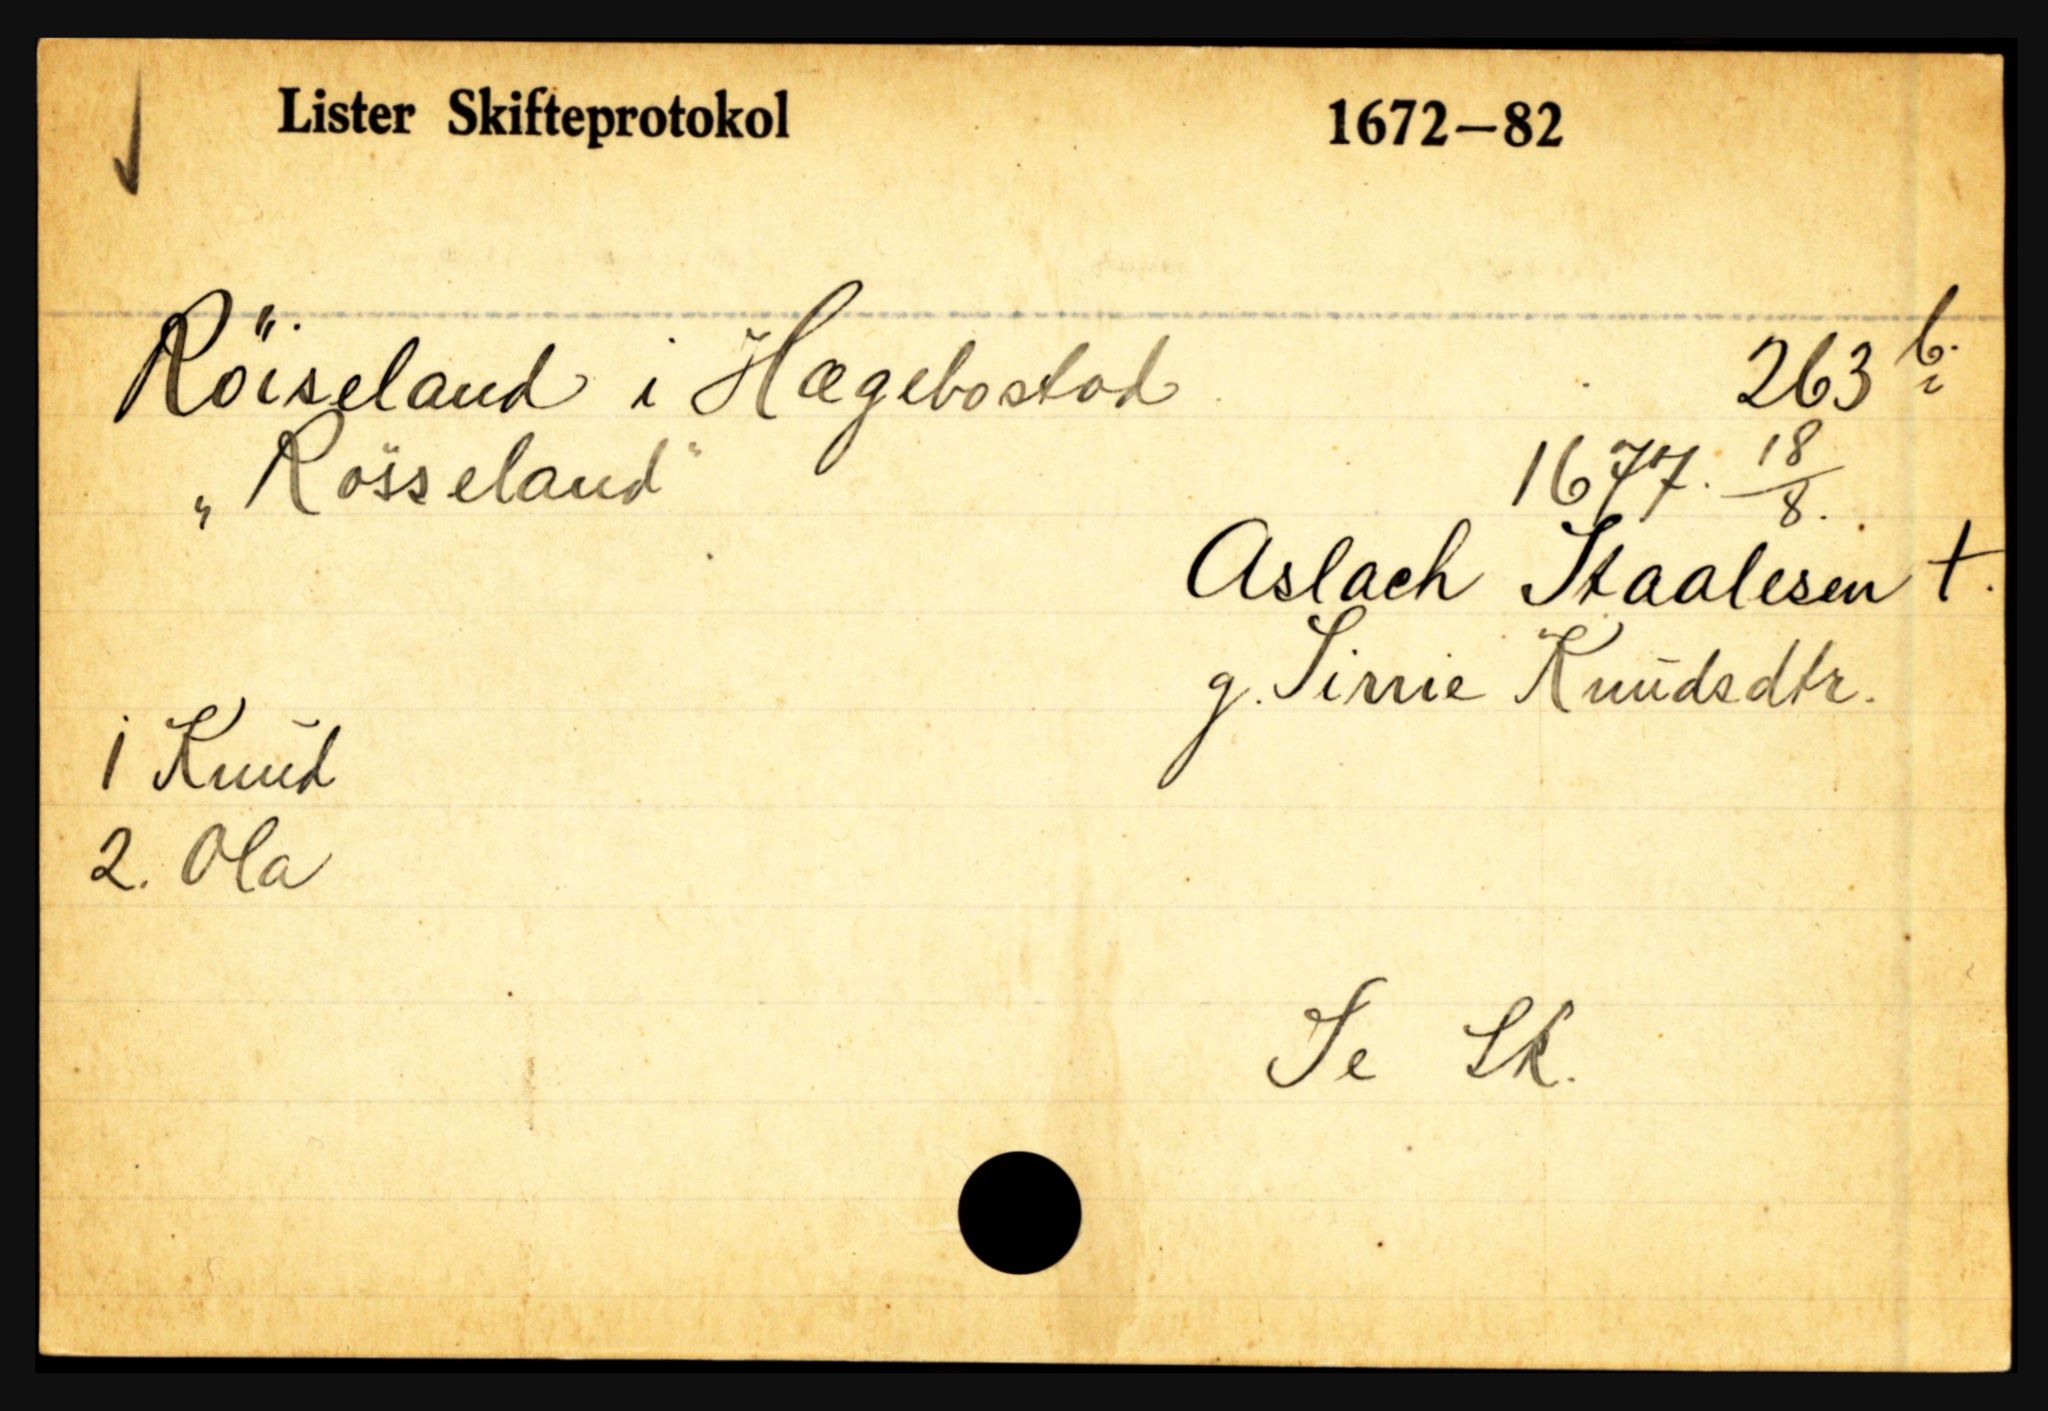 Lister Skifteprotokol 1672–82
Röiseland i Hægebostad 263 b.
„Rösseland" 1677. 18/8.
Aslach Staalesen †.
g. Sirrie Knudsdtr.
1 Knud
2. Ola
Se Sk.